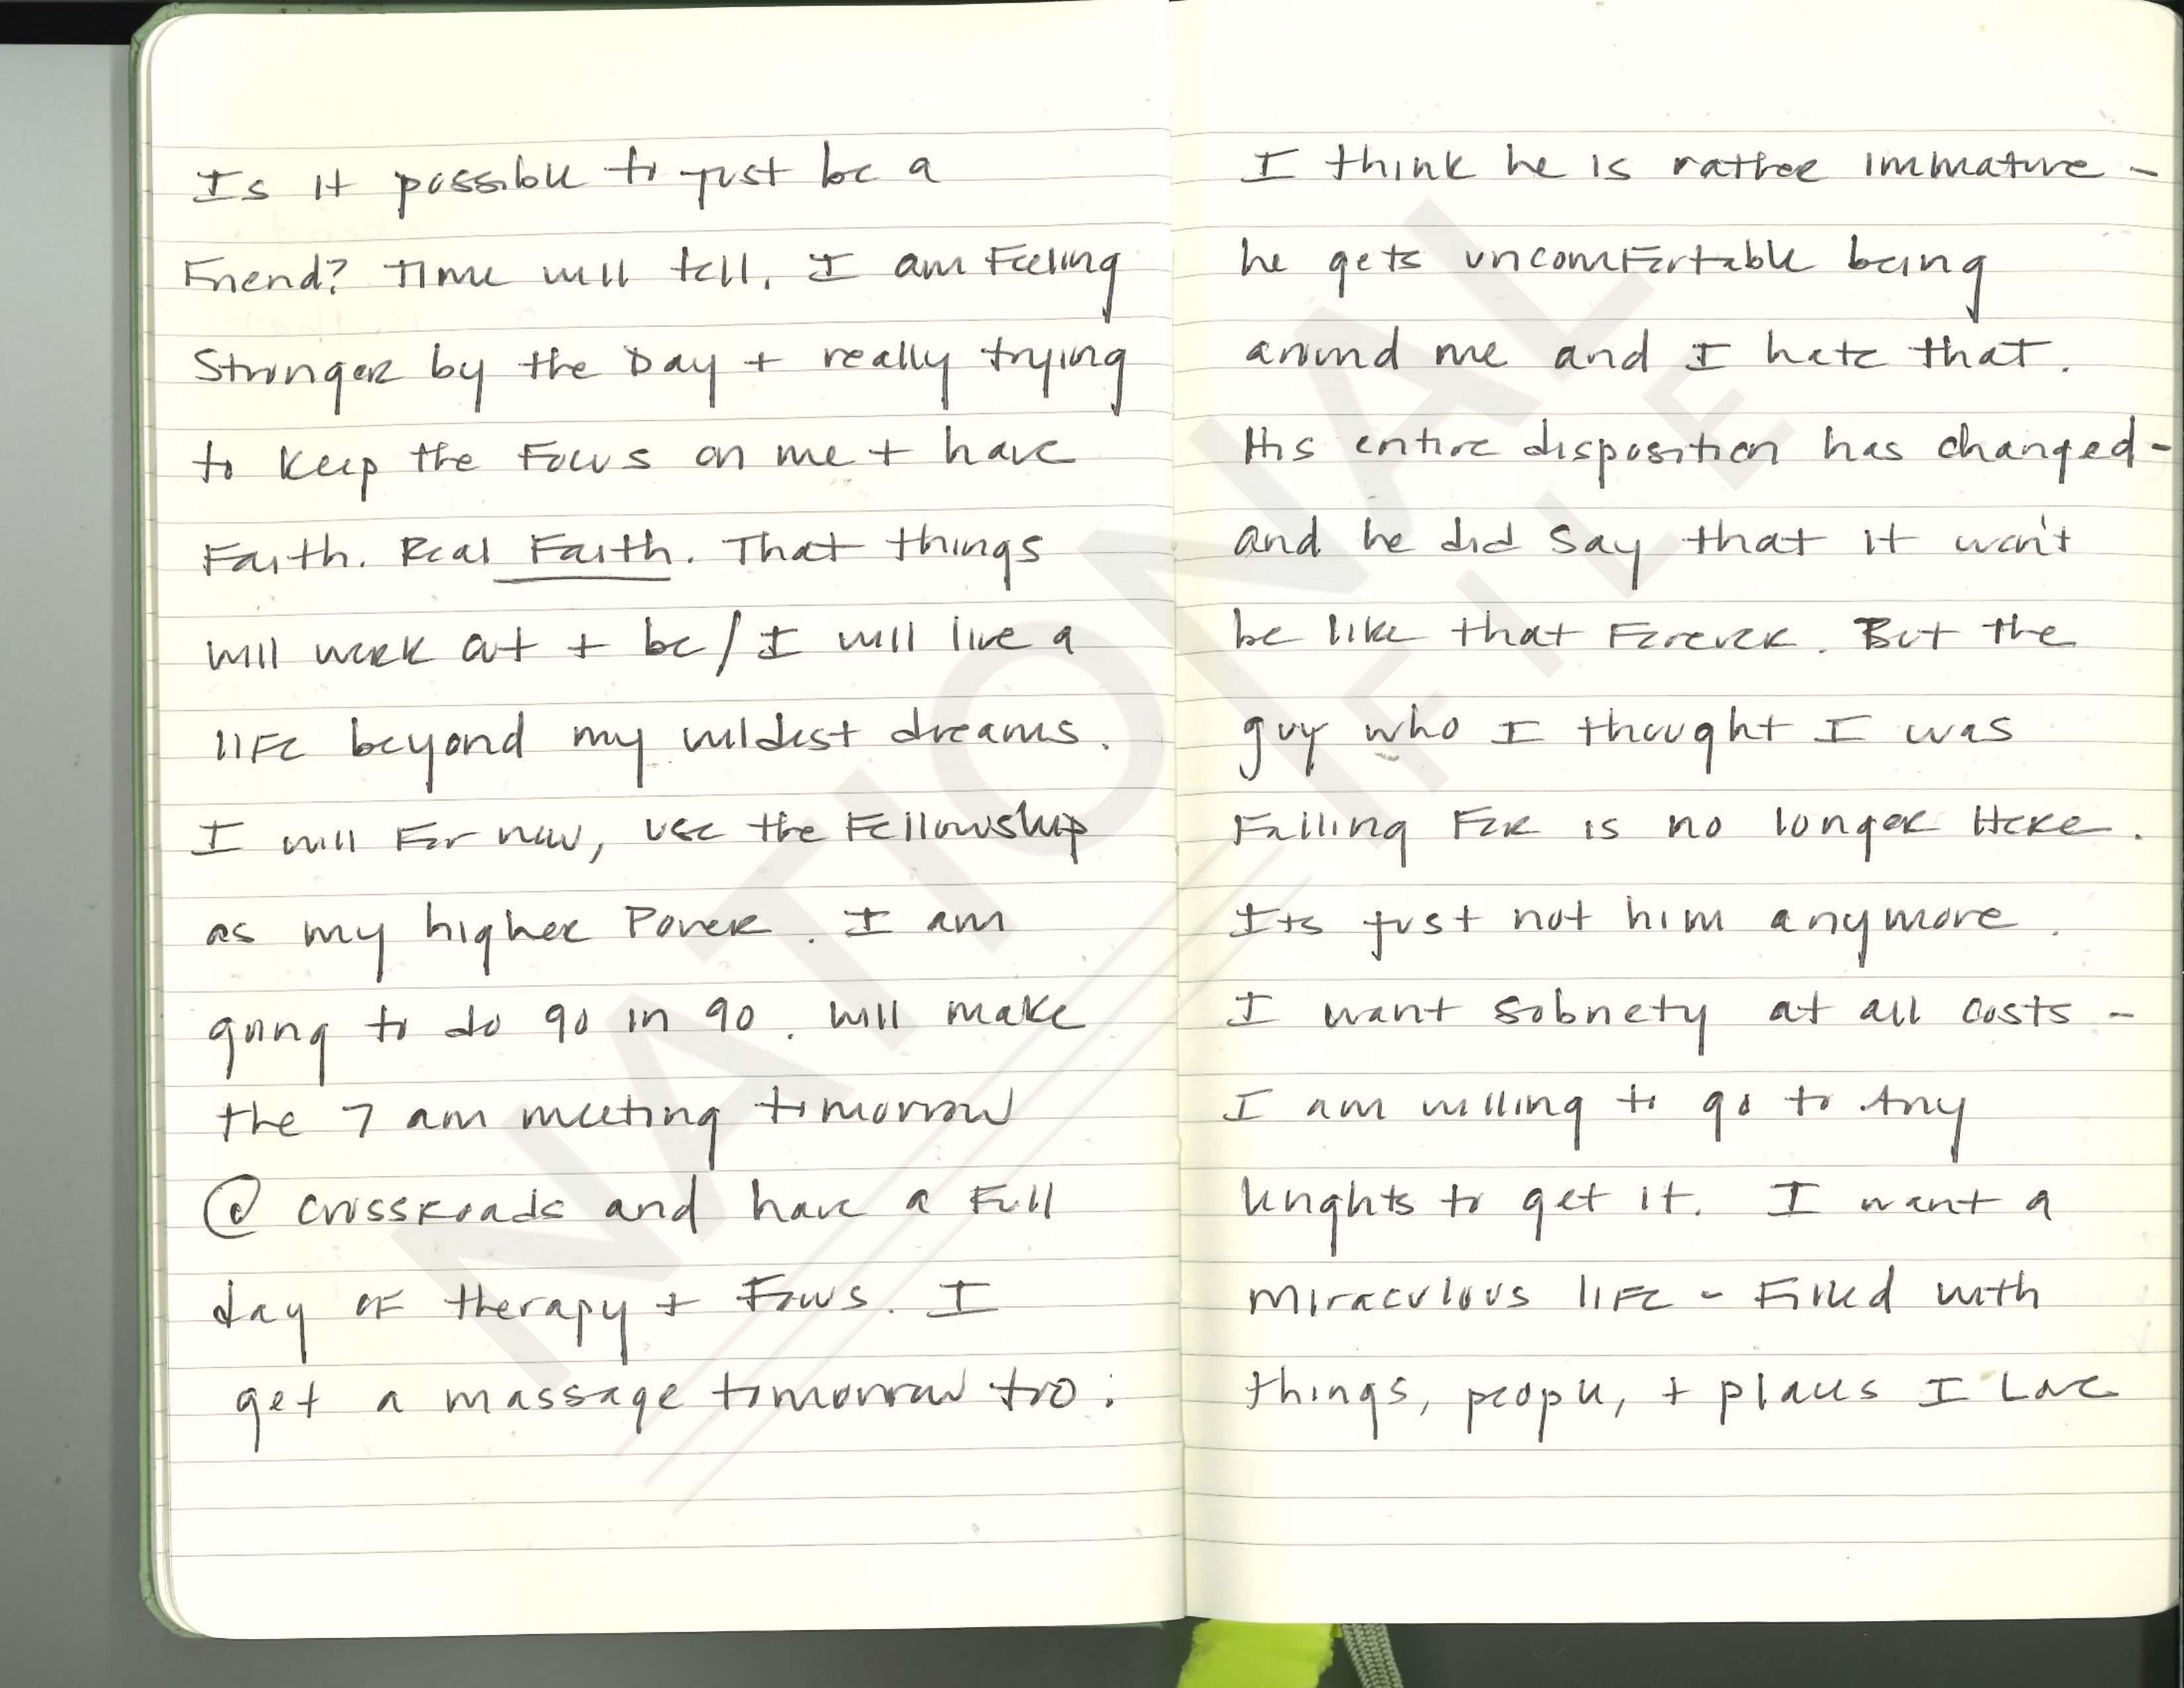 Is it possible to just be a
Friend? Time will tell. I am Feeling
Stronger by the Day + really trying
to keep the Focus on me + have
Faith. Real Faith. That things
will work out + be / I will live a
life beyond my wildest dreams.
I will For now, use the Fellowship
as my higher Power. I am
going to do 90 in 90. Will make
the 7 am meeting tomorrow
@ crossroads and have a Full
day of therapy + Focus. I
get a massage tomorrow too.
I think he is rather immature -
he gets uncomfortable being
around me and I hate that.
His entire disposition has changed -
and he did say that it won't
be like that Forever. But the
guy who I thought I was
Falling For is no longer Here.
Its just not him anymore.
I want sobriety at all costs -
I am willing to go to Any
lenghts to get it. I want a
miraculous life - Filled with
things, people, + places I Love
NATIONAL
FILE